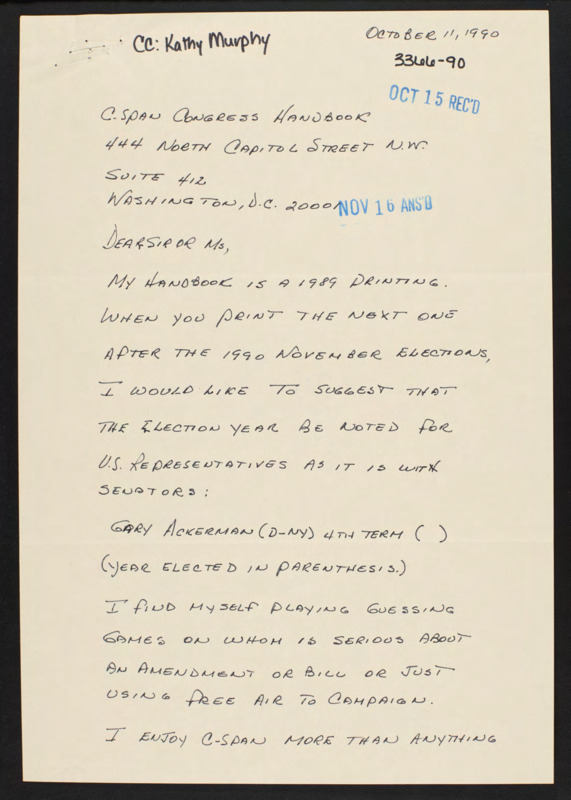 CC: Kathy Murphy
OCTOBER 11, 1990
3366-90
OCT 15 REC'D
C-SPAN CONGRESS HANDBOOK
444 NORTH CAPITOL STREET N.W.
SUITE 412
WASHINGTON, D.C. 20001
NOV 16 ANS'D
DEAR SIR OR MS,
MY HANDBOOK IS A 1989 PRINTING.
WHEN YOU PRINT THE NEXT ONE
AFTER THE 1990 NOVEMBER ELECTIONS,
I WOULD LIKE TO SUGGEST THAT
THE ELECTION YEAR BE NOTED FOR
U.S. REPRESENTATIVES AS IT IS WITH
SENATORS:
GARY ACKERMAN (D-NY) 4TH TERM ( )
(YEAR ELECTED IN PARENTHESIS.)
I FIND MYSELF PLAYING GUESSING
GAMES ON WHOM IS SERIOUS ABOUT
AN AMENDMENT OR BILL OR JUST
USING FREE AIR TO CAMPAIGN.
I ENJOY C-SPAN MORE THAN ANYTHING